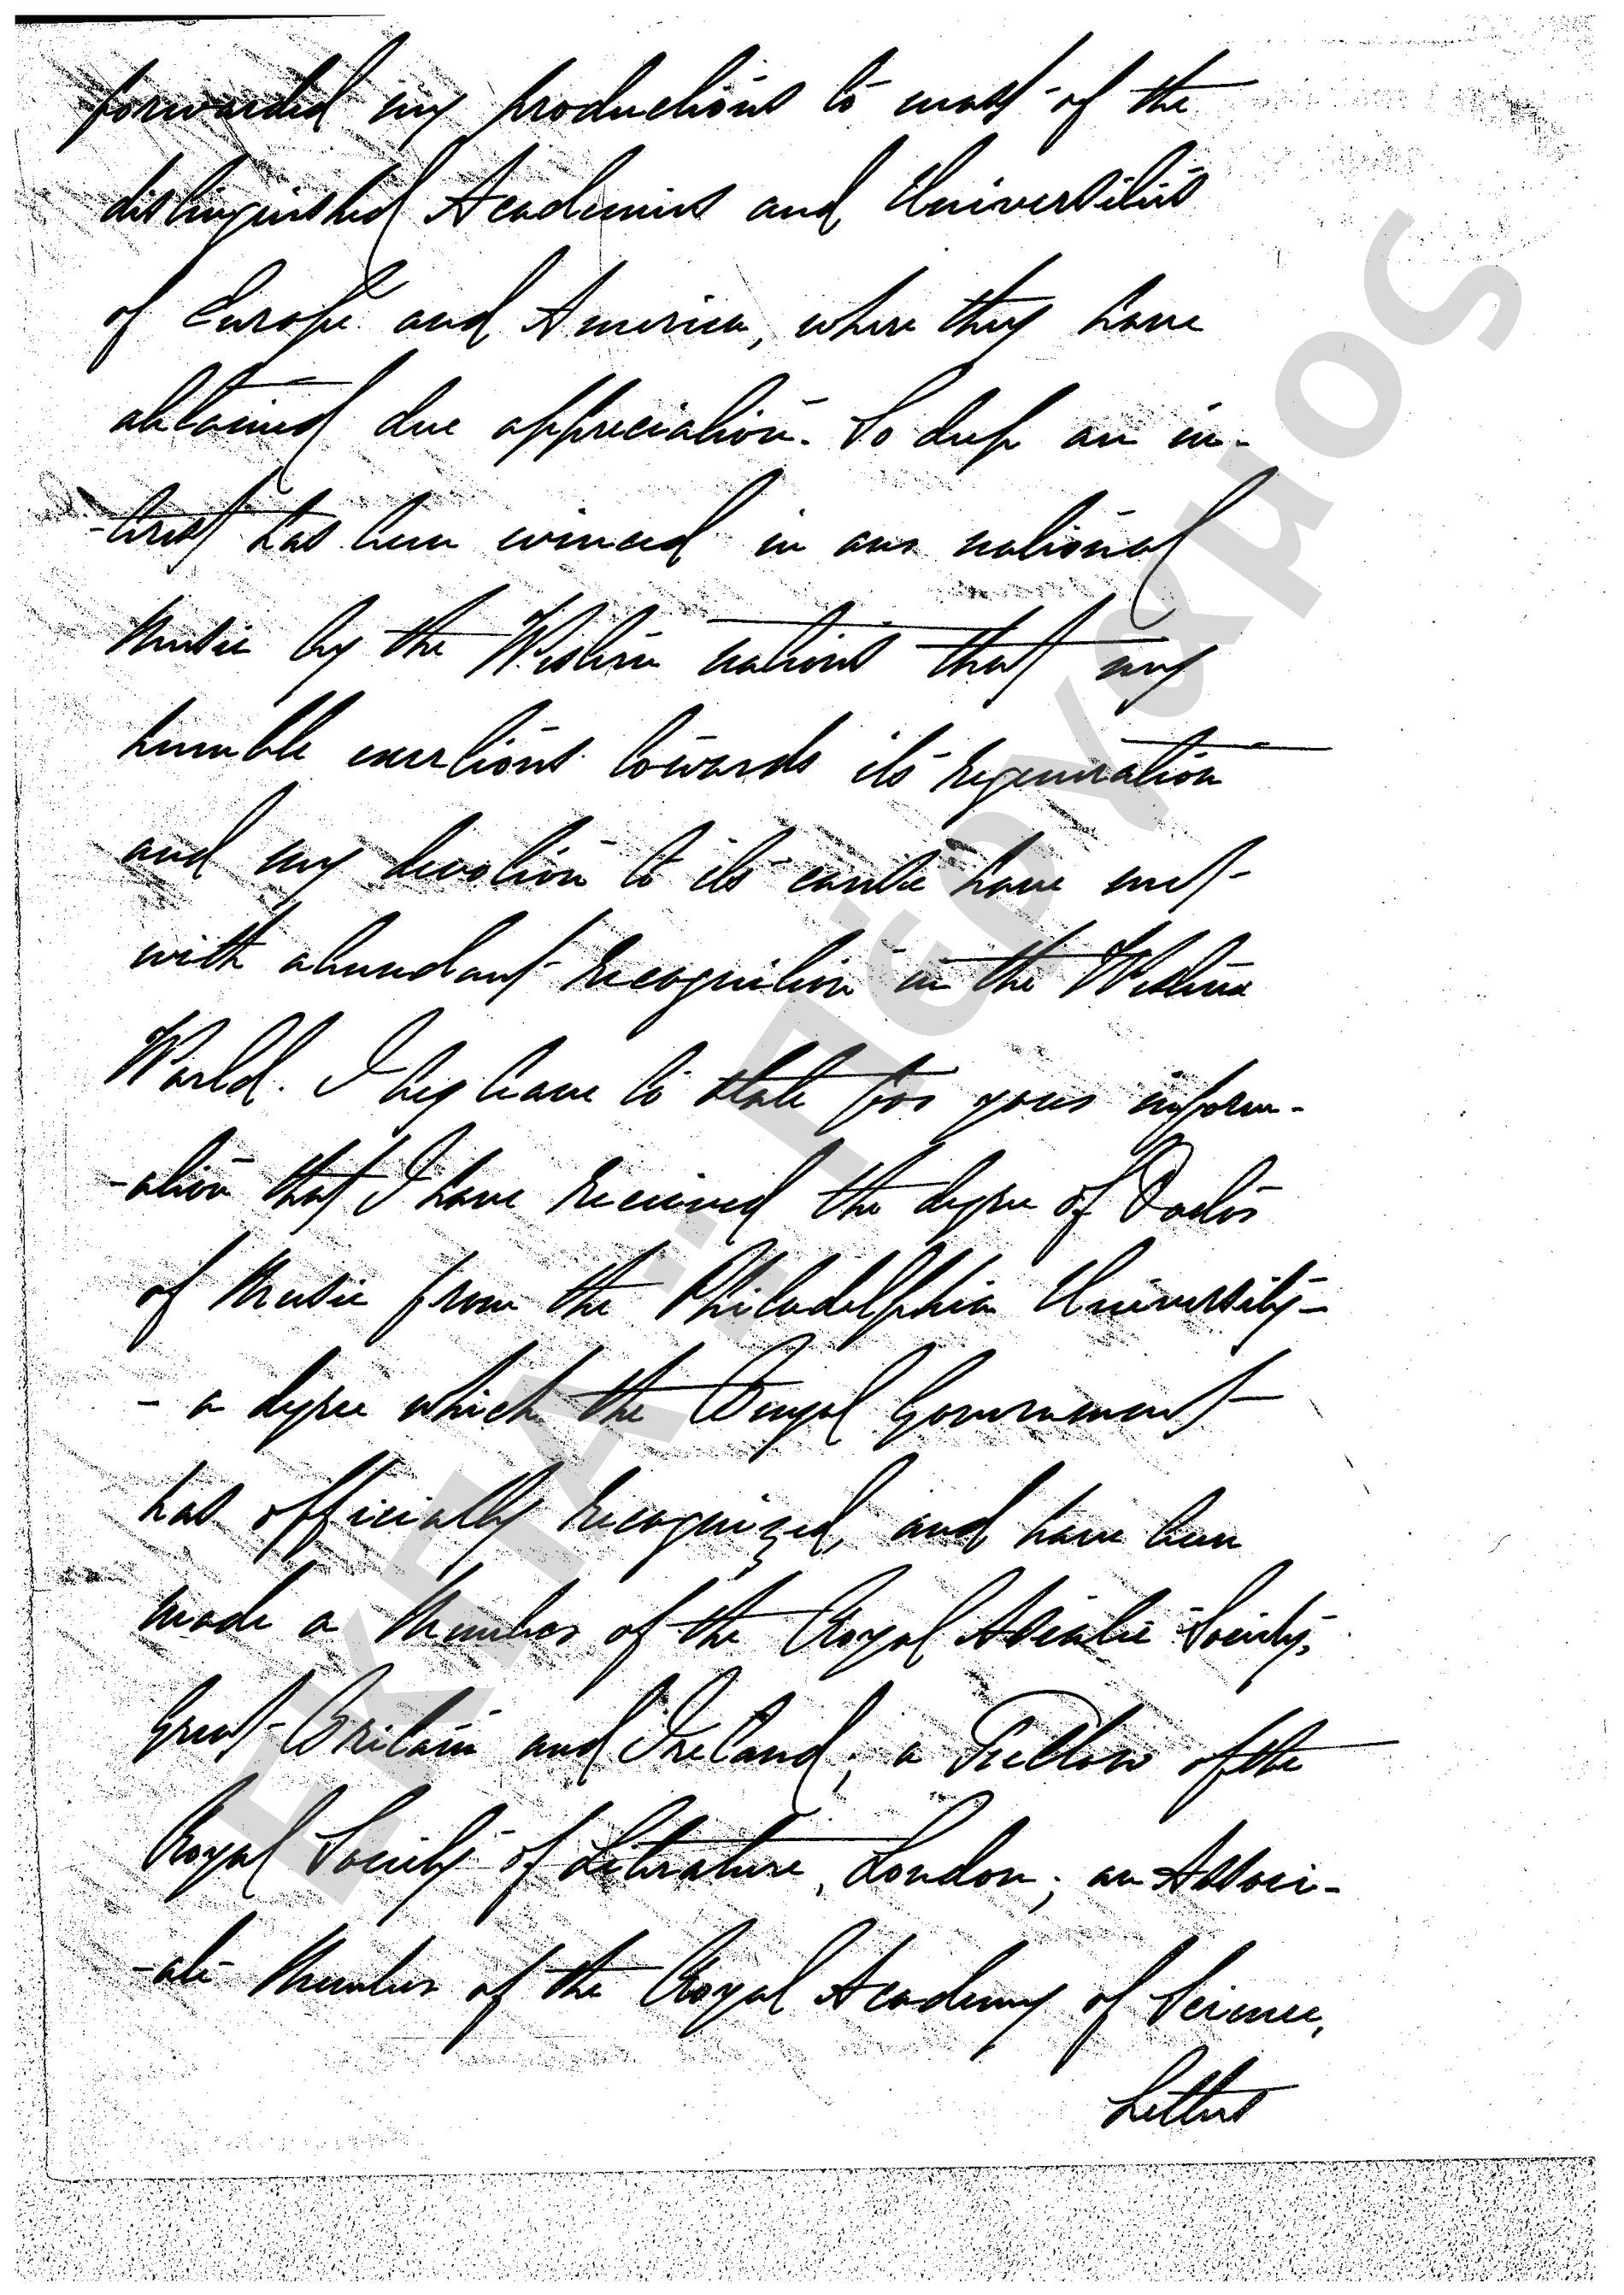 forwarded my productions to most of the
distinguished Academies and Universities
of Europe and America, where they have
obtained due appreciation. So deep an in-
-terest has been evinced in our national
Music by the Western nations that my
humble exertions towards its regeneration
and my devotion to its cause have met
with abundant recognition in the Western
World. I beg leave to state for your inform-
-ation that I have received the degree of Doctor
of Music from the Philadelphia University-
- a degree which the Bengal Government
has officially recognized, and have been
made a Member of the Royal Asiatic Society,
Great Britain and Ireland; a Fellow of the
Royal Society of Literature, London; an Associ-
-ate Member of the Royal Academy of Science,
Letters